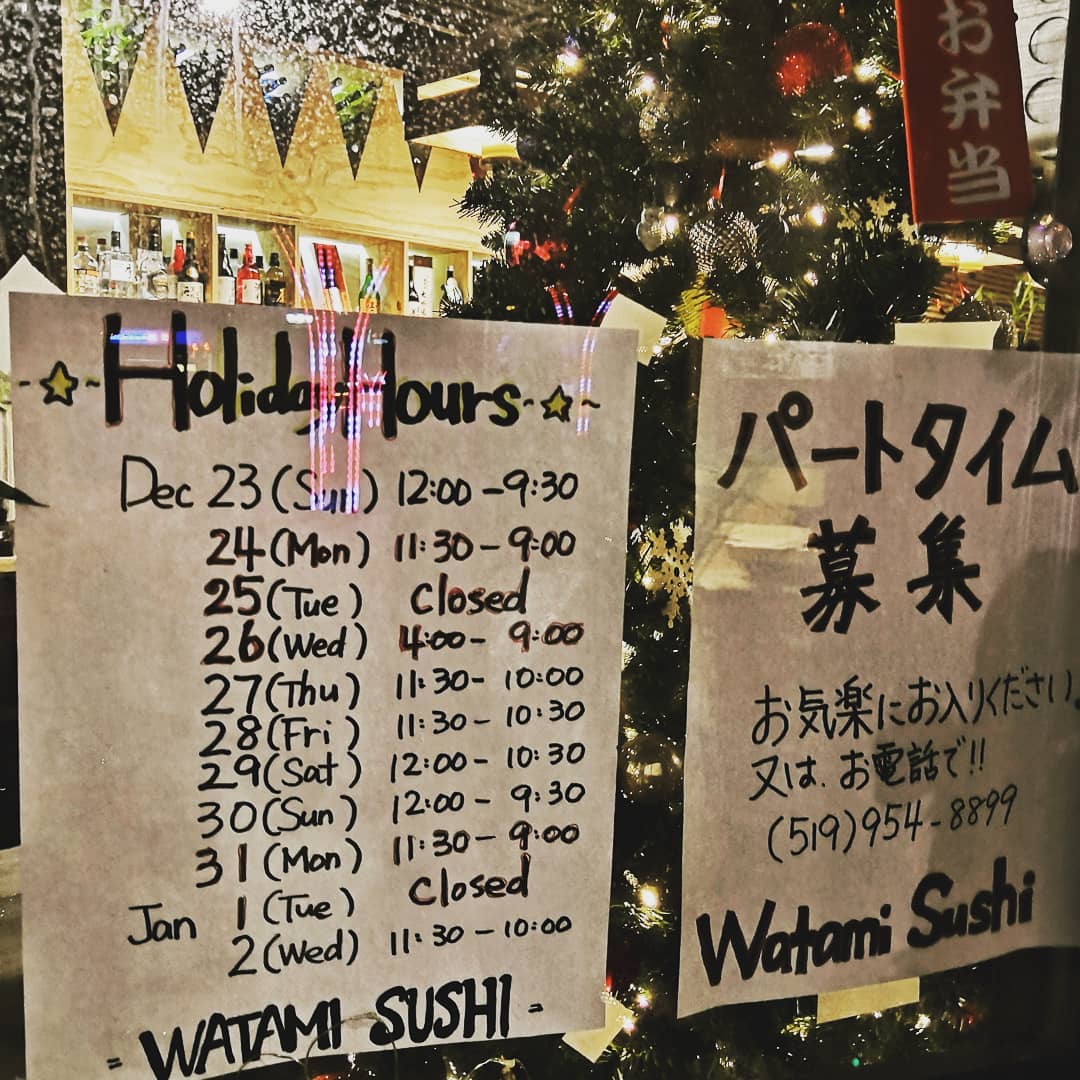 お弁当
Holiday Hours
Dec 23 (Sun) 12:00 - 9:30
24 (Mon) 11:30 - 9:00
25 (Tue) Closed
26 (Wed) 4:00 - 9:00
27 (Thu) 11:30 - 10:00
28 (Fri) 11:30 - 10:30
29 (Sat) 12:00 - 10:30
30 (Sun) 12:00 - 9:30
31 (Mon) 11:30 - 9:00
Jan 1 (Tue) Closed
2 (Wed) 11:30 - 10:00
= WATAMI SUSHI =
パートタイム
募集
お気楽にお入りください。
又は、お電話で!!
(519)954-8899
Watami Sushi